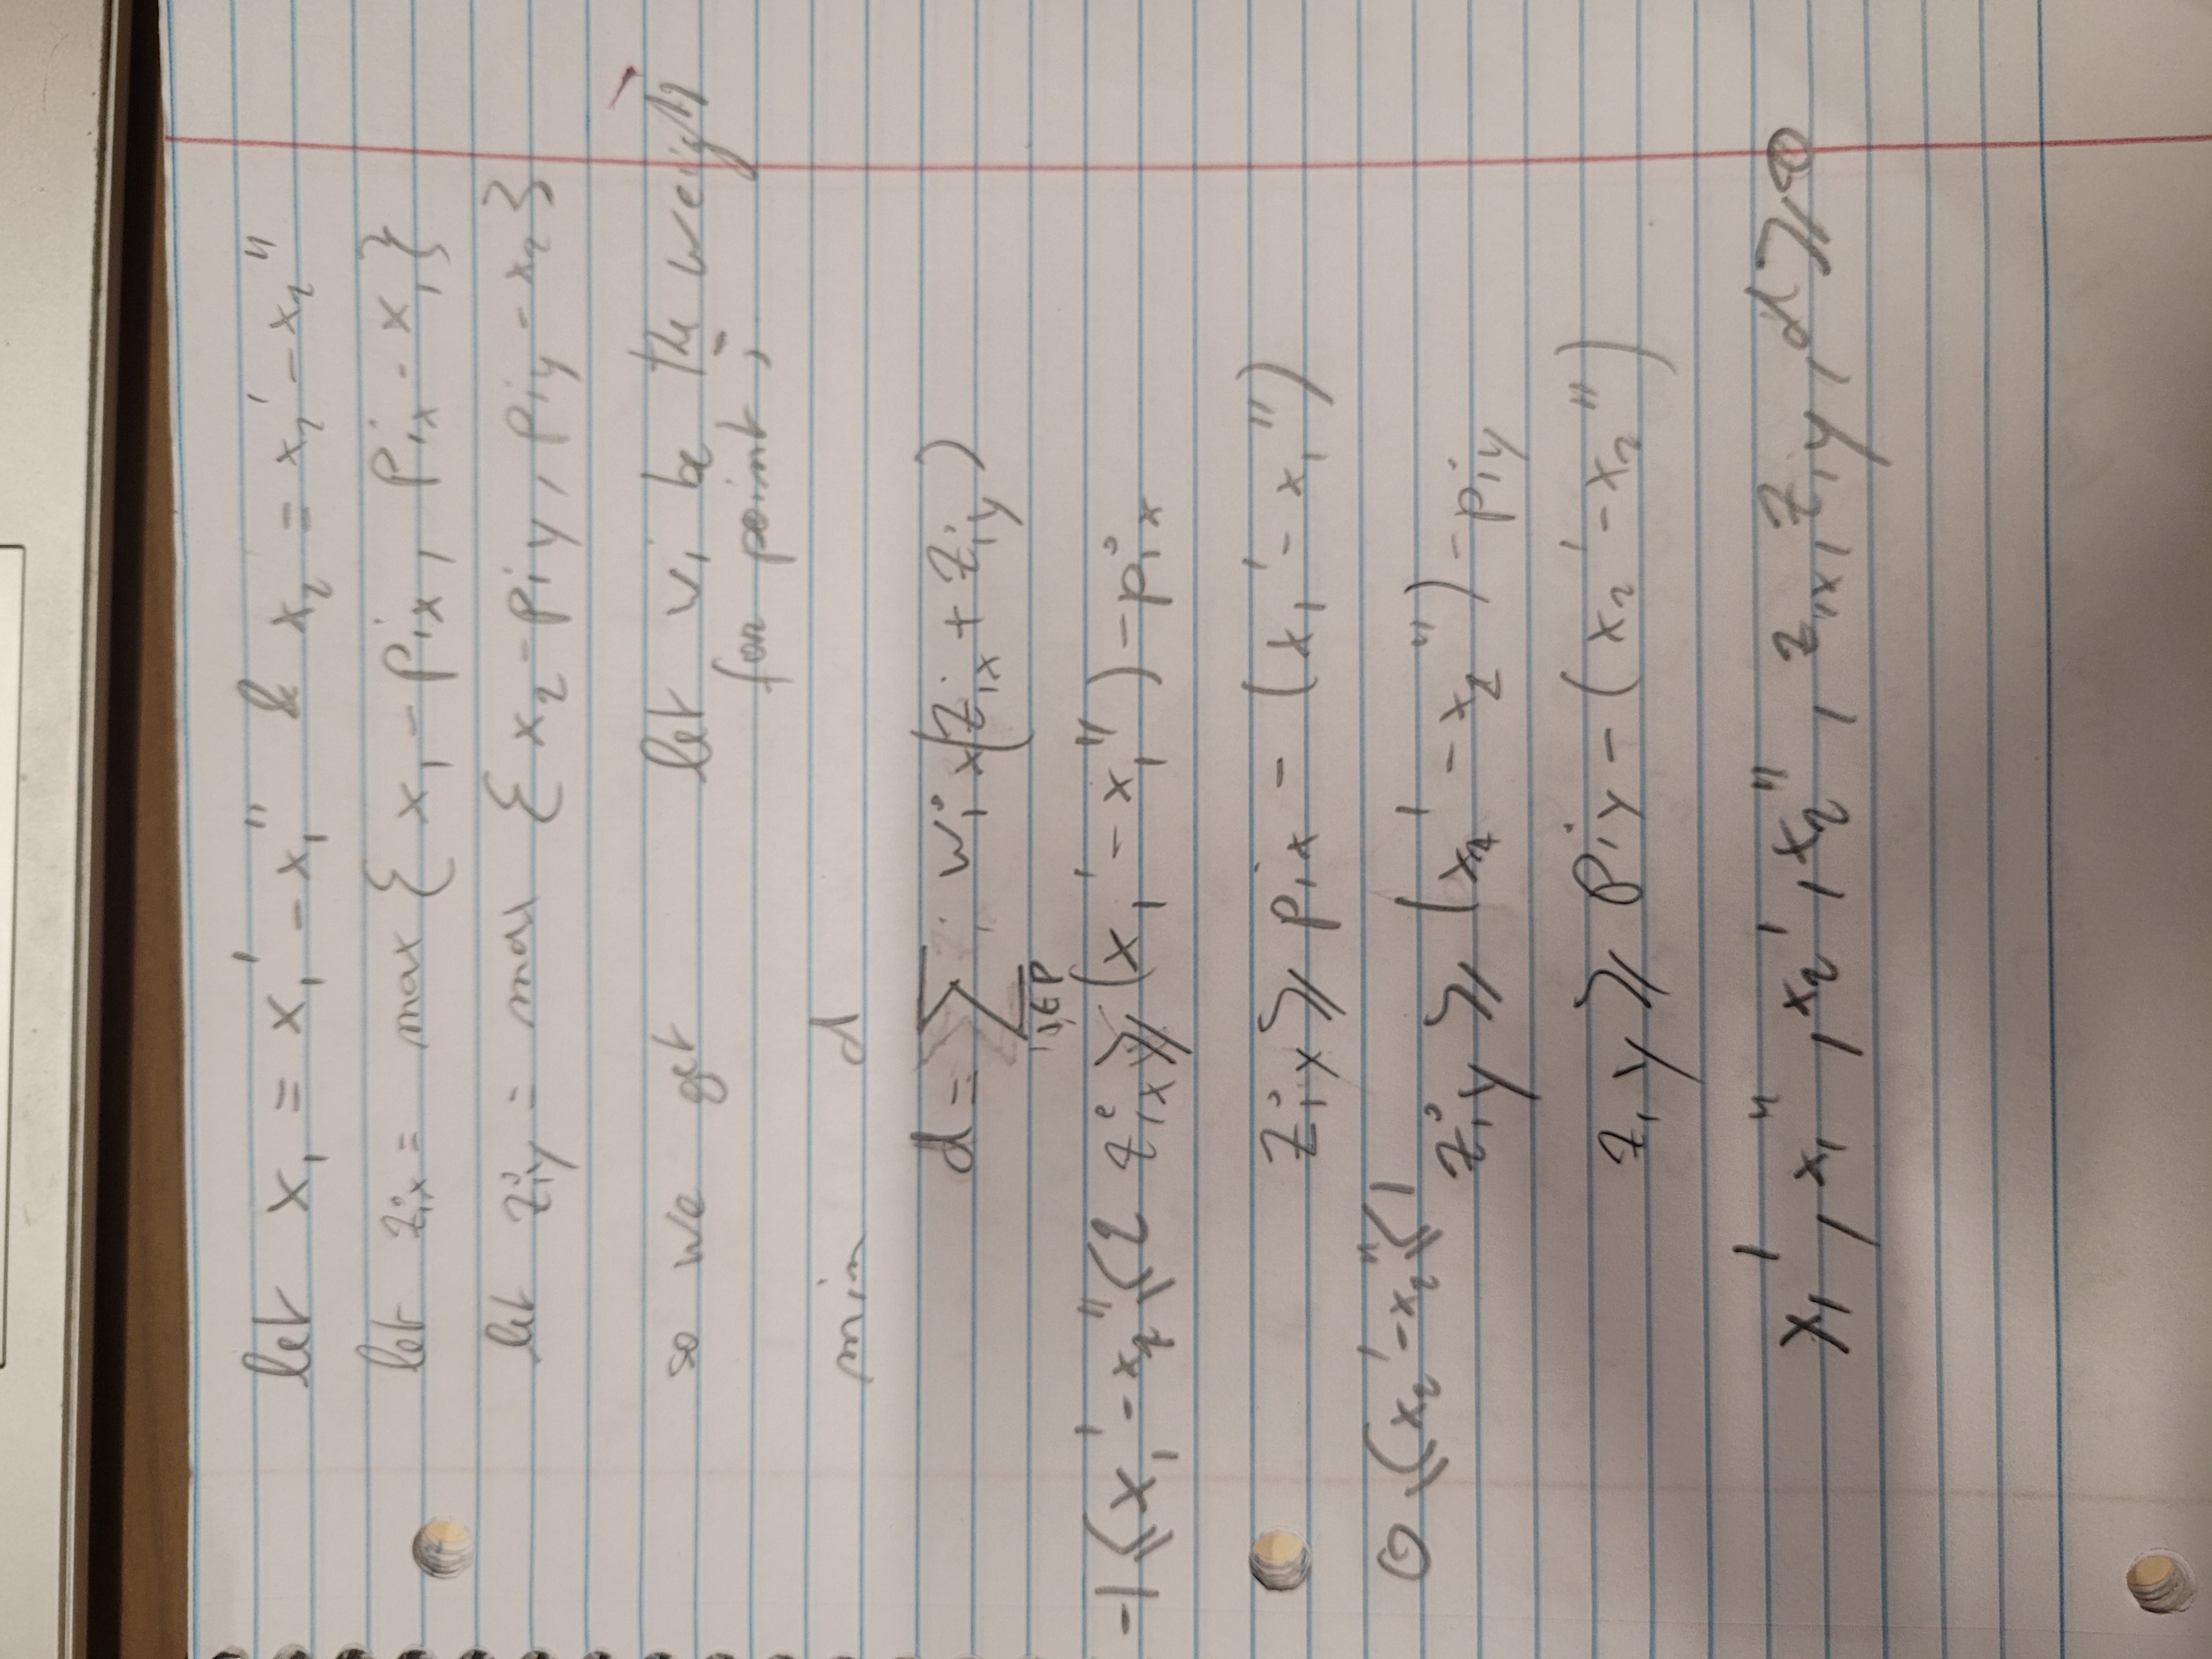 let x₁ = x₁' - x₁'' & x₂ = x₂' - x₂''
let zᵢₓ = max { x₁ - pᵢₓ, pᵢₓ - x₁}
let zᵢy = max { x₂ - pᵢy, pᵢy - x₂}
so we get let vᵢ be the weight
for point i
min d
d = ∑ wᵢ x(zᵢₓ + zᵢy)
i∈P
-1 ⩽ x₁' - x₂'' ⩽ 2 zᵢₓ ⩾ (x₁' - x₁'') - pᵢₓ
zᵢₓ ⩾ pᵢₓ - (x₁' - x₁'')
0 ⩽ x₂' - x₂'' ⩽ 1
zᵢy ⩾ (x₂' - x₂'') - pᵢy
zᵢy ⩾ pᵢy - (x₂' - x₂'')
x₁', x₁'', x₂', x₂'', zᵢₓ, zᵢy, d ⩾ 0